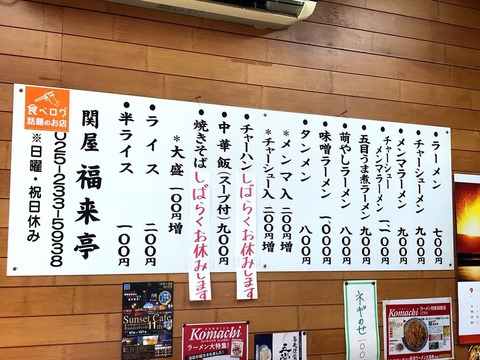 ラーメン 七〇〇円
チャーシューメン 九〇〇円
メンマラーメン 九〇〇円
チャーシュー
メンマラーメン
五目うま煮ラーメン 九〇〇円
萌やしラーメン 八〇〇円
味噌ラーメン
タンメン 八〇〇円
＊メンマ入 二〇〇円増
＊チャーシュー入 二〇〇円増
チャーハン
しばらくお休みします
中華飯(スープ付) 九〇〇円
焼きそば
しばらくお休みします
＊大盛 一〇〇円増
ライス 二〇〇円
半ライス 一〇〇円
関屋 福来亭
025-233-5938
※日曜・祝日休み
食べログ
話題のお店
ネギのせ
Sunset Cafe
11th
Komachi
ラーメン大特集!
Komachi
9